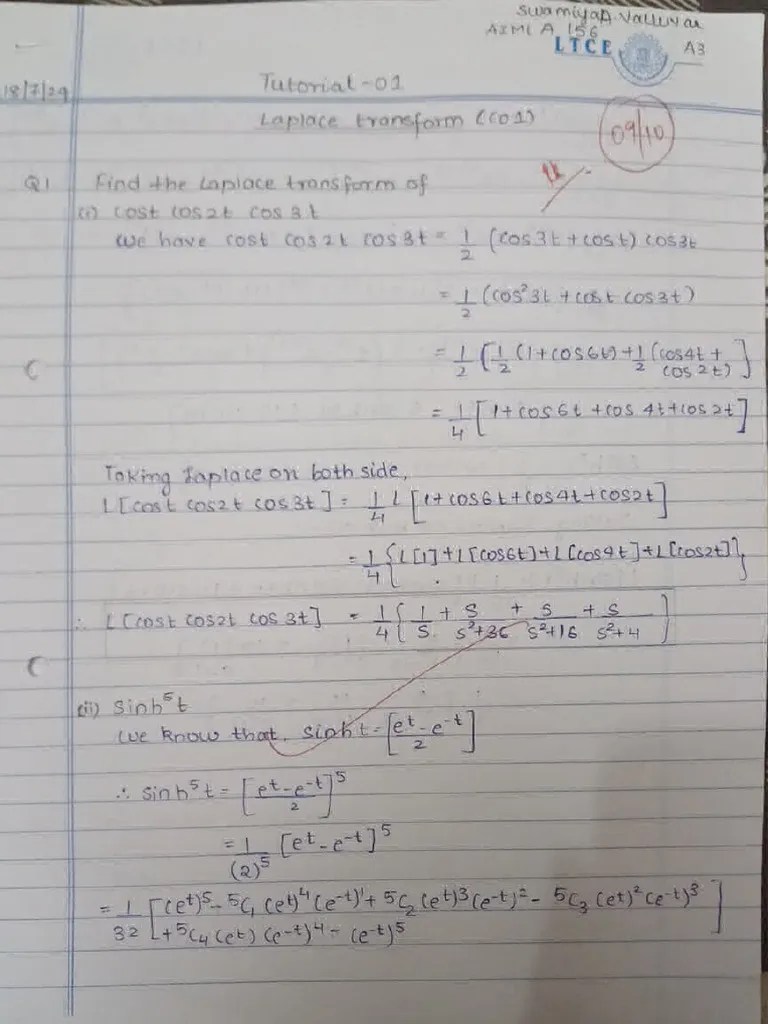 Swamiyaa.Valluvar
AIML A 156
LTCE A3
18/7/24
Tutorial-01
Laplace transform (CO1)
09/10
Q1 Find the Laplace transform of
(i) cost cos2t cos 3t
We have cost cos2t cos3t = 1/2 (cos3t + cost) cos3t
= 1/2 (cos²3t + cost cos3t)
= 1/2 [1/2 (1+cos6t) + 1/2 (cos4t + cos2t)]
= 1/4 [1+cos6t + cos 4t + cos2t]
Taking Laplace on both side,
L[cost cos2t cos3t] = 1/4 L [1+cos6t+cos4t+cos2t]
= 1/4 {L[1]+L[cos6t]+L[cos4t]+L[cos2t]}
∴ L[cost cos2t cos 3t] = 1/4 { 1/s + s/s²+36 + s/s²+16 + s/s²+4 ]
(ii) sinh⁵t
We know that, sinht = [e^t - e^-t / 2]
∴ sinh⁵t = [e^t - e^-t / 2]⁵
= 1/(2)⁵ [e^t - e^-t]⁵
= 1/32 [(e^t)⁵ - ⁵C₁ (e^t)⁴ (e^-t)¹ + ⁵C₂ (e^t)³ (e^-t)² - ⁵C₃ (e^t)² (e^-t)³
+ ⁵C₄ (e^t) (e^-t)⁴ - (e^-t)⁵ ]